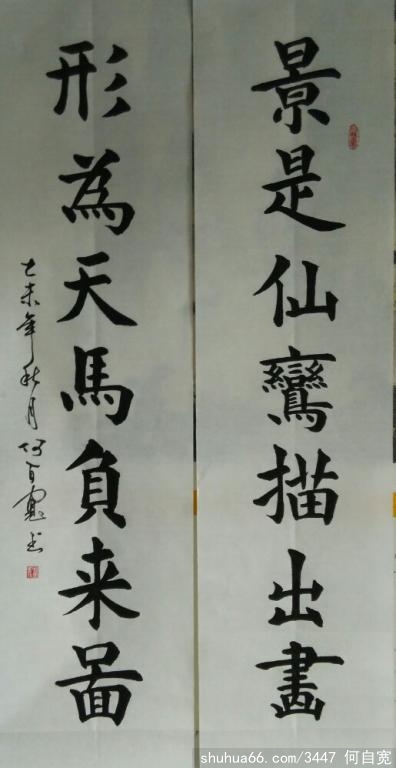 景是仙鸞描出畫
形為天馬負来啚
乙未年秋月何自寬书
shuhua66.com/3447 何自宽